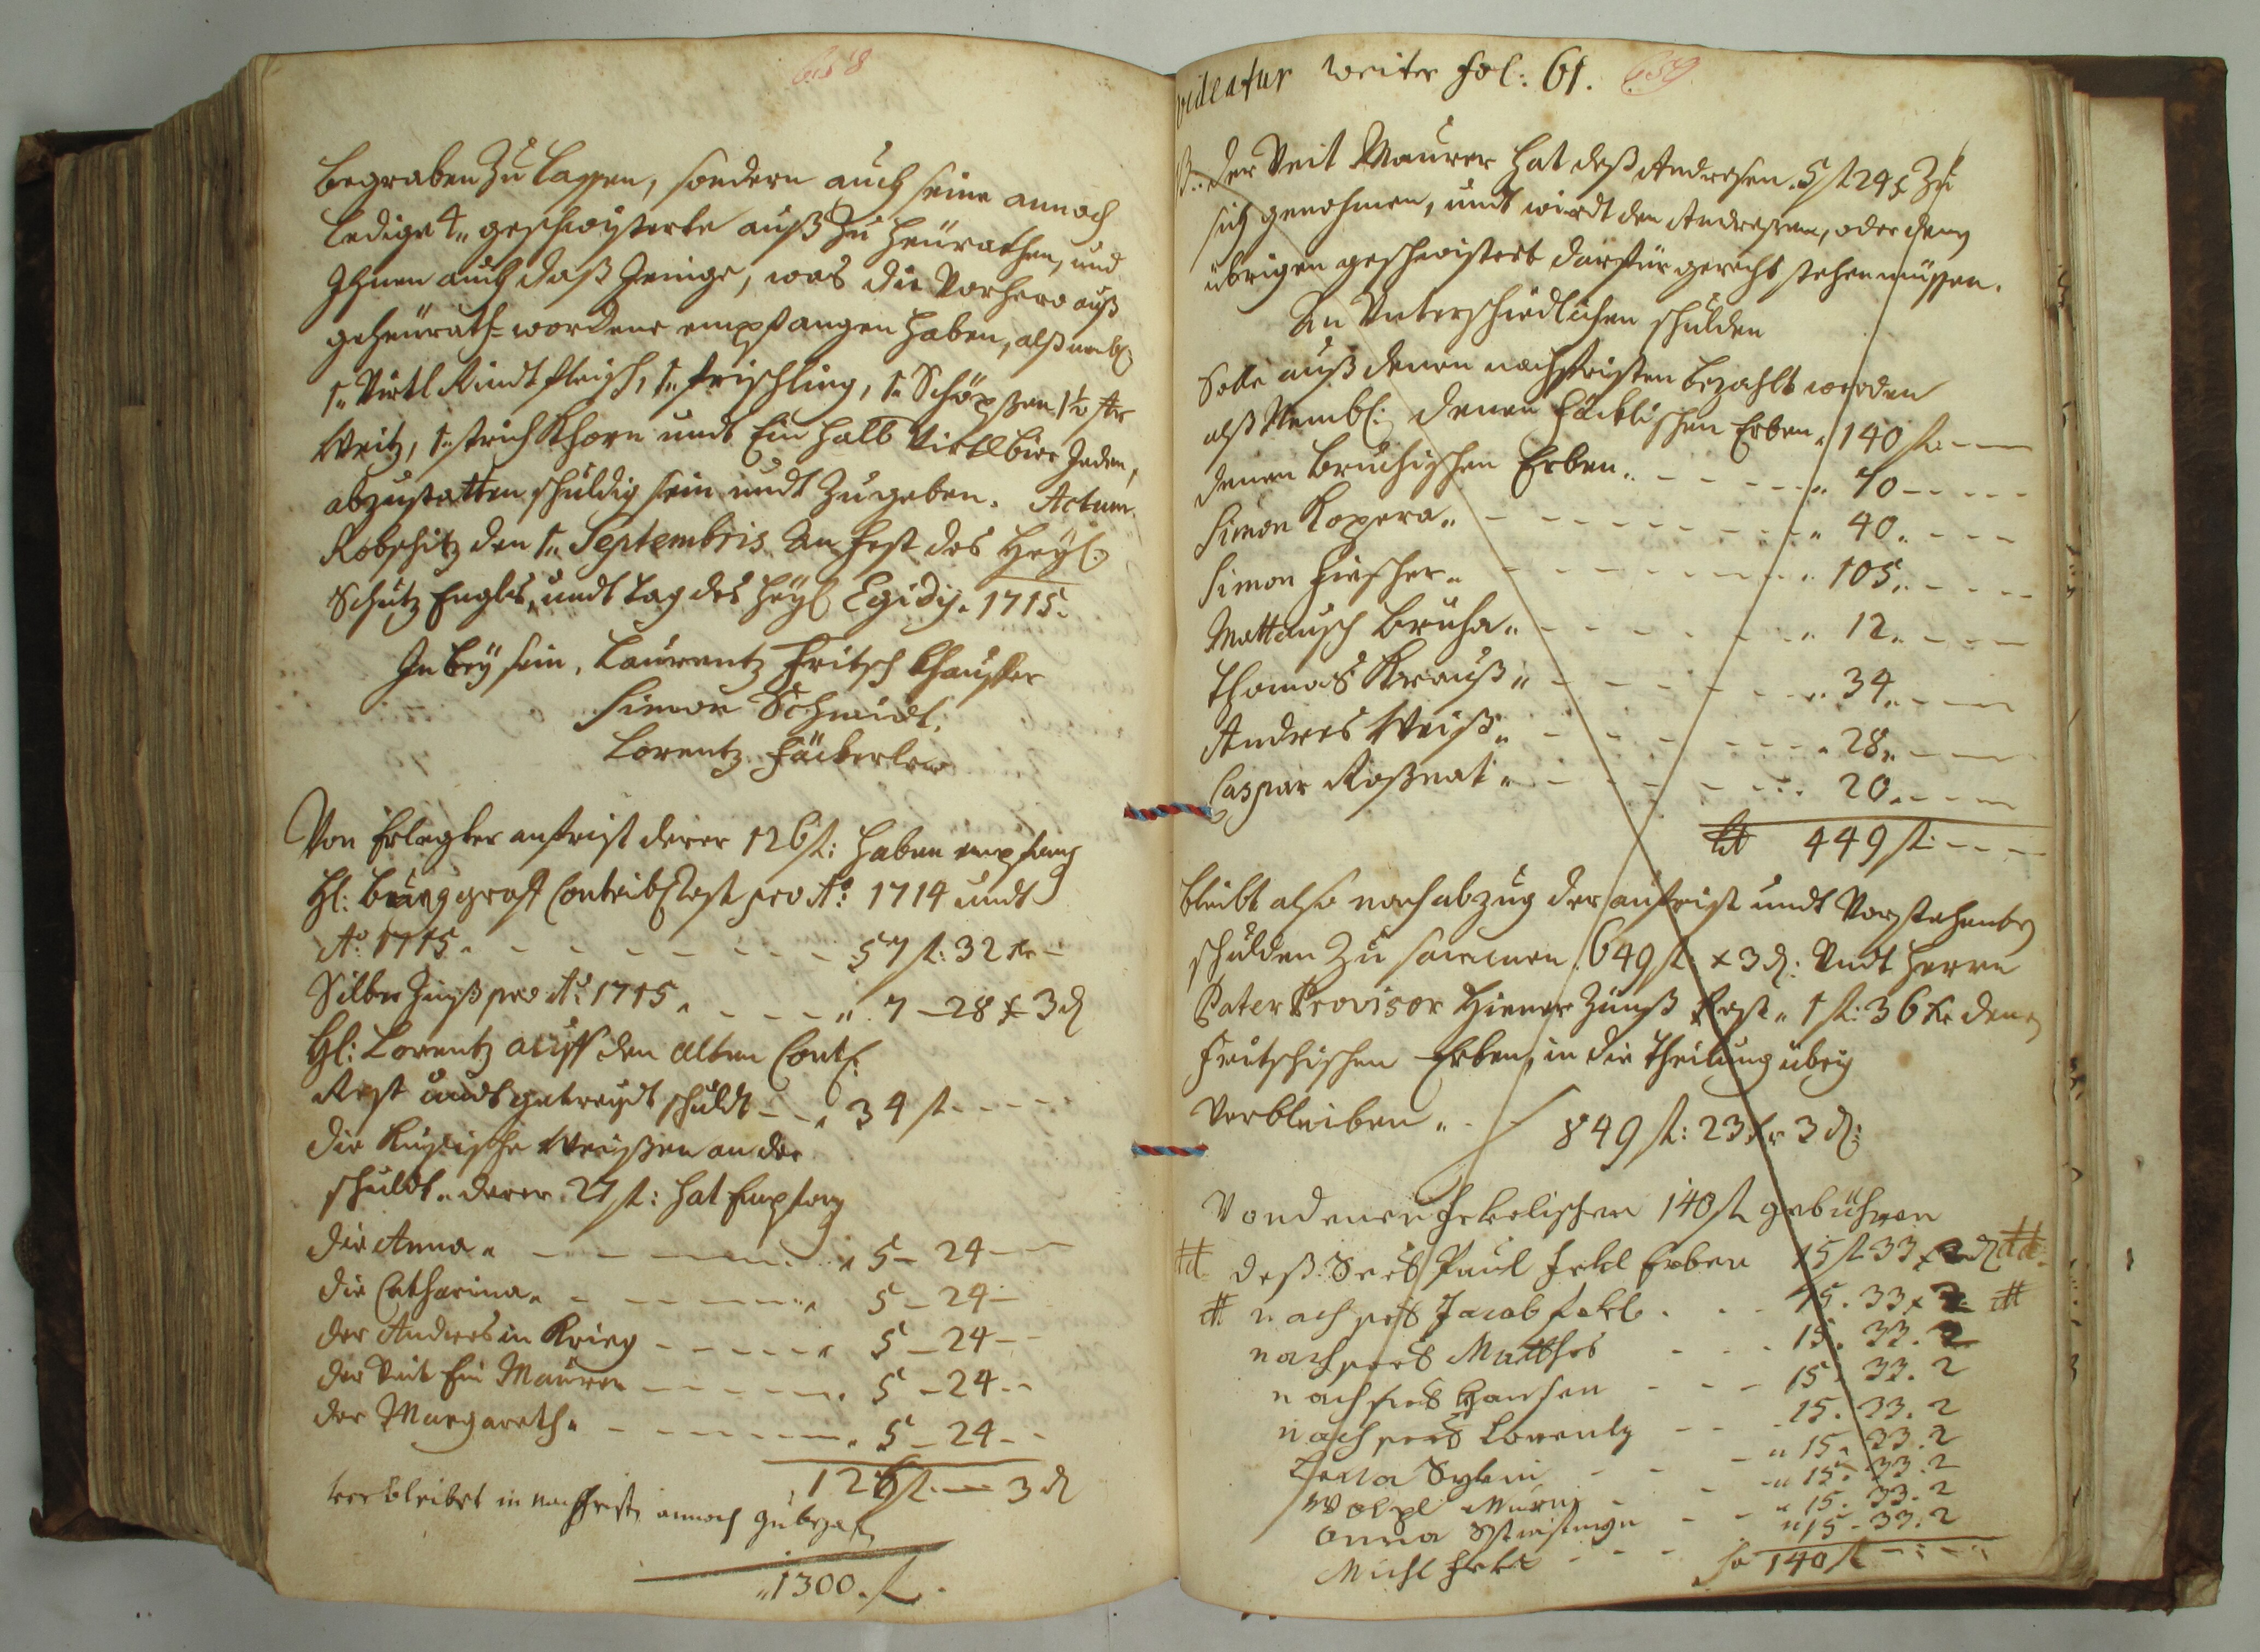 658
begraben Zu lassen, sondern auch seine annoch
ledige 4„ geschwisterte auß Zu heürathen, und
Ihnen auch daß Jenige, was die Vorhero auß
geheürath= wordene empfangen haben, alß nembl:
1„ Virtl Rindtfleisch, 1„ frischling, 1„ Schöpßen, 1½ str
Weitz, 1„ strich Khorn undt Ein halb Virtl bier Jeden,
abzustatten schuldig sein undt Zu geben. Actum
Robschitz den 1„ Septembris An fest des Heyl:
Schutz Engls, undt tag des Heyl Egidy. 1715.
In beÿ sein, Laurentz Fritsch
Simon Schmidt,
Lorentz
Von Erlegter anfrist derer 126 fl: haben empfang
Hl: burggraff Contrib Rest pro Aō: 1714 undt
Aō: 1715. - - - - - - 57 fl: 32 xr -
Silber Zinß pro Aō 1715 „ - - - „ 7 - 28 x 3 d
Hl: Lorentz auff den alten Cont:
Rest undt getreydt schuldt - - „ 34 fl - - - -
die Weißen an der
schuldt „ derer 27 fl: hat Empfang
die Anna „ - - - - - „ 5 - 24 - -
die Catharina „ - - - - - „ 5 - 24 -
der Andres in Krieg - - - - - „ 5 - 24 - -
der Veit Ein Maurer - - - - - „ 5 - 24 - -
der Margareth „ - - - - - „ 5 - 24 - -
126 fl - 3 d
verbleibet in nachfristen annoch Zubezahlen
„ 1300. fl.
videatur weiter fol: 61. 659
Der Veit Maurer hat deß Andresen 5 fl 24 x Zu
sich genohmen, undt wirdt den Andresen, oder denen
übrigen geschwistert darfür gerecht stehen müssen.
An Unterschiedlichen schulden
Solle auß denen nachfristen bezahlt werden
alß Nembl: denen Erben „ 140 fl - -
denen Bruhischen Erben „ - - - - - „ 70 - - - - -
Simon Kopera „ - - - - - - - „ 40 „ - - -
Simon Fischer „ - - - - - - - „ 105 „ - - -
Mattausch Bruha „ - - - - - - „ 12 „ - - -
Thomas Krauß „ - - - - - - „ 34 „ - - -
Andres Weiß „ - - - - - - „ 28 „ - - -
Caspar Roßnat „ - - - - - - 20 „ - - -
449 fl: - - -
bleibt also nach abzug der anfrist undt Vorstehenten
schulden Zu sammen 649 fl x 3 d: Undt Herrn
Pater Provisor Hiener Zinnß Rest „ 1 fl: 36 xr denen
Fritschischen Erben, in die Theilung übrig
Verbleiben „ - - 849 fl: 23 xr 3 d:
Von denen 140 fl gebühren
deß Paul Erben 15 fl 33 x 2 d
nach Jacob - - - 15. 33 x 2
nach Matthes - - - 15. 33. 2
nach Hansen - - - 15. 33. 2
nach Lorentz - - - 15. 33. 2
- - - „ 15. 33. 2
- - - „ 15. 33. 2
Anna - - „ 15. 33. 2
Michl - - - „ 15 - 33. 2
140 fl - - - -